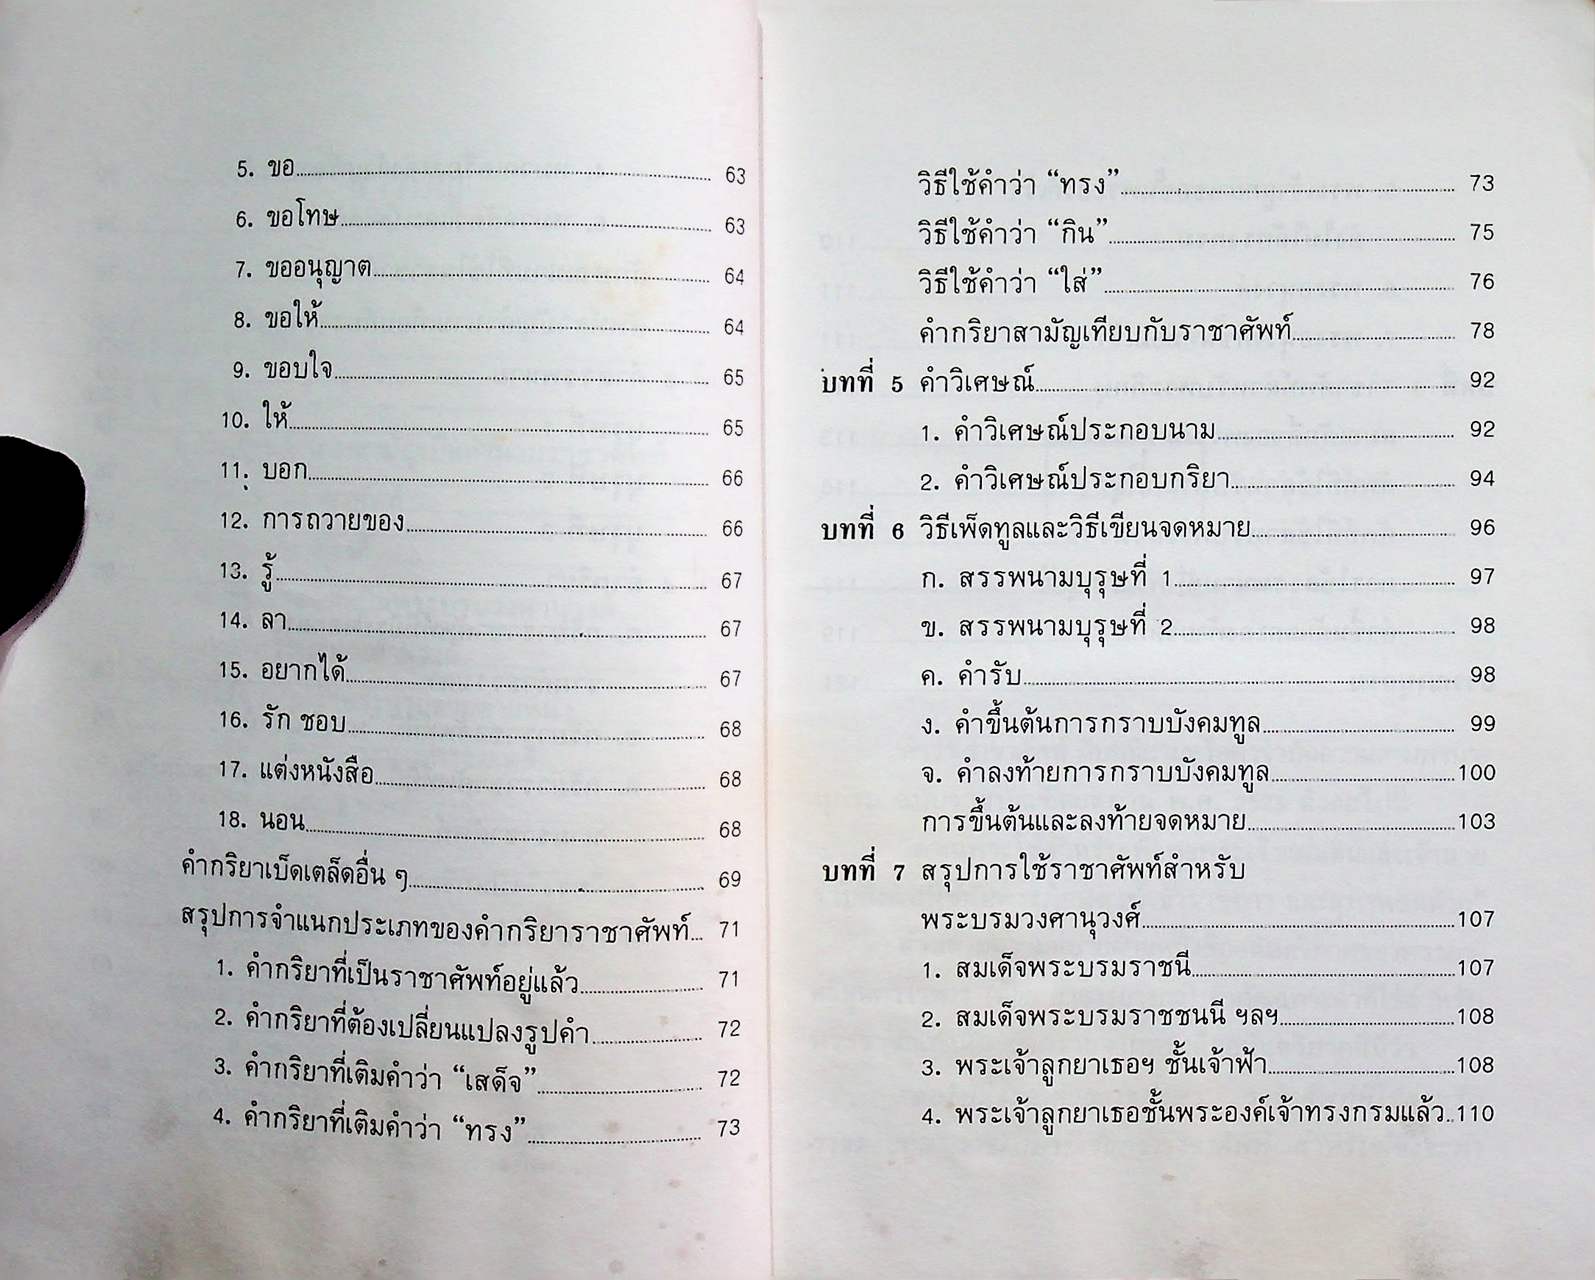 5. ขอ 63
6. ขอโทษ 63
7. ขออนุญาต 64
8. ขอให้ 64
9. ขอบใจ 65
10. ให้ 65
11. บอก 66
12. การถวายของ 66
13. รู้ 67
14. ลา 67
15. อยากได้ 67
16. รัก ชอบ 68
17. แต่งหนังสือ 68
18. นอน 68
คำกริยาเบ็ดเตล็ดอื่น ๆ 69
สรุปการจำแนกประเภทของคำกริยาราชาศัพท์ 71
1. คำกริยาที่เป็นราชาศัพท์อยู่แล้ว 71
2. คำกริยาที่ต้องเปลี่ยนแปลงรูปคำ 72
3. คำกริยาที่เติมคำว่า “เสด็จ” 72
4. คำกริยาที่เติมคำว่า “ทรง” 73
วิธีใช้คำว่า “ทรง” 73
วิธีใช้คำว่า “กิน” 75
วิธีใช้คำว่า “ใส่” 76
คำกริยาสามัญเทียบกับราชาศัพท์ 78
บทที่ 5 คำวิเศษณ์ 92
1. คำวิเศษณ์ประกอบนาม 92
2. คำวิเศษณ์ประกอบกริยา 94
บทที่ 6 วิธีเพ็ดทูลและวิธีเขียนจดหมาย 96
ก. สรรพนามบุรุษที่ 1 97
ข. สรรพนามบุรุษที่ 2 98
ค. คำรับ 98
ง. คำขึ้นต้นการกราบบังคมทูล 99
จ. คำลงท้ายการกราบบังคมทูล 100
การขึ้นต้นและลงท้ายจดหมาย 103
บทที่ 7 สรุปการใช้ราชาศัพท์สำหรับ
พระบรมวงศานุวงศ์ 107
1. สมเด็จพระบรมราชนี 107
2. สมเด็จพระบรมราชชนนี ฯลฯ 108
3. พระเจ้าลูกยาเธอฯ ชั้นเจ้าฟ้า 108
4. พระเจ้าลูกยาเธอชั้นพระองค์เจ้าทรงกรมแล้ว 110